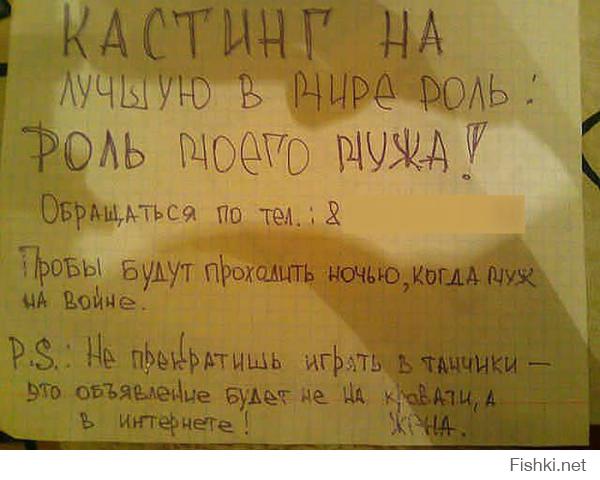 КАСТИНГ НА
ЛУЧШУЮ В МИРЕ РОЛЬ:
РОЛЬ МОЕГО МУЖА!
ОБРАЩАТЬСЯ ПО ТЕЛ.: 8
ПРОБЫ БУДУТ ПРОХОДИТЬ НОЧЬЮ, КОГДА МУЖ
НА ВОЙНЕ.
P.S.: НЕ ПРЕКРАТИШЬ ИГРАТЬ В ТАНЧИКИ —
ЭТО ОБЪЯВЛЕНИЕ БУДЕТ НЕ НА КРОВАТИ, А
В ИНТЕРНЕТЕ! ЖЕНА.
Fishki.net